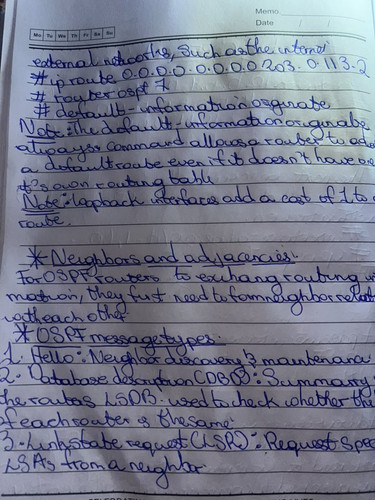 Memo
Date / /
Mo Tu We Th Fr Sa Su
external networks, such as the internet
# ip route 0.0.0.0 0.0.0.0 203.0.113.2
# router ospf 7
# default-information orginate
Note: The default-information originate
always command allows a router to ad
a default route even if it doesn't have one
it's own routing table
Note: loopback interfaces add a cost of 1 to a
route.
* Neighbors and adjacencies:
For OSPF routers to exchang routing
mation, they fust need to form neighbor relat
with each other
* OSPF message types:
1. Hello: Neighbor discovery & maintenance
2. Database description (DBD): Summary
the routers LSDB. used to check whether the
of each router is the same
3. Link state request (LSR): Request Spec
LSAs from a neighbor